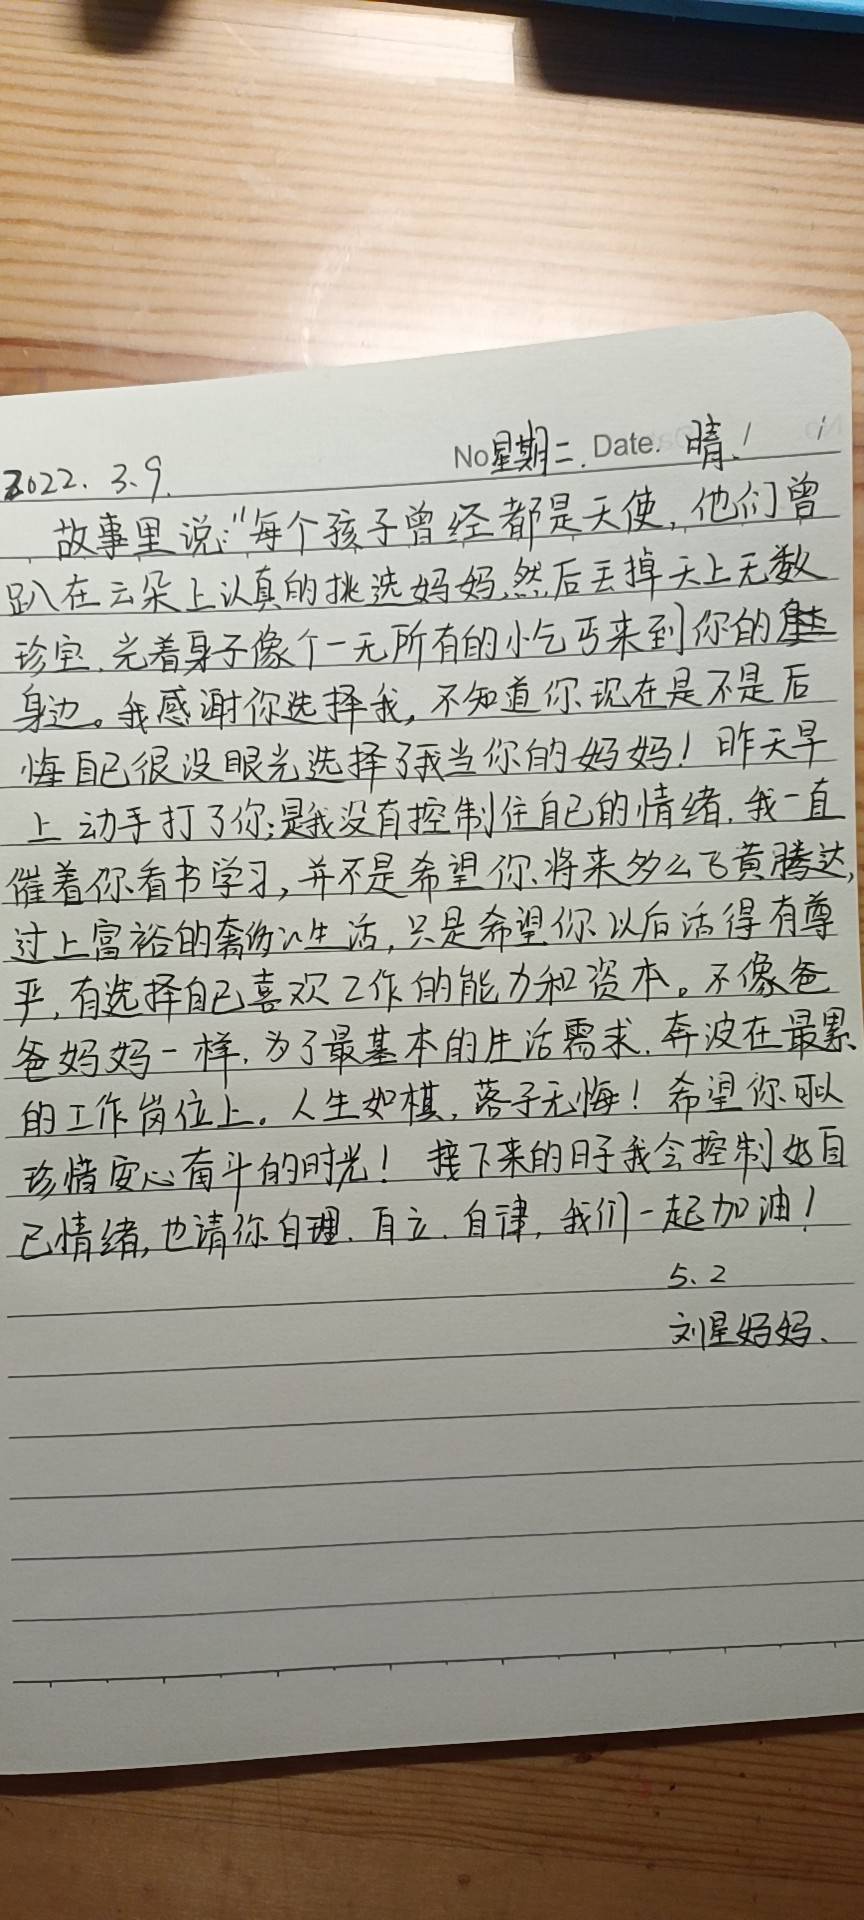 2022.3.9. No星期二. Date. 晴!
故事里说:"每个孩子曾经都是天使,他们曾
趴在云朵上认真的挑选妈妈,然后丢掉天上无数
珍宝,光着身子像个一无所有的小乞丐来到你的
身边。我感谢你选择我,不知道你现在是不是后
悔自己很没眼光选择了我当你的妈妈!昨天早
上动手打了你;是我没有控制住自己的情绪.我一直
催着你看书学习,并不是希望你将来多么飞黄腾达,
过上富裕的奢侈生活,只是希望你以后活得有尊
严,有选择自己喜欢工作的能力和资本。不像爸
爸妈妈一样,为了最基本的生活需求,奔波在最累
的工作岗位上。人生如棋,落子无悔!希望你可以
珍惜安心奋斗的时光!接下来的日子我会控制好自
己情绪,也请你自理.自立.自律,我们一起加油!
5.2
刘星妈妈、